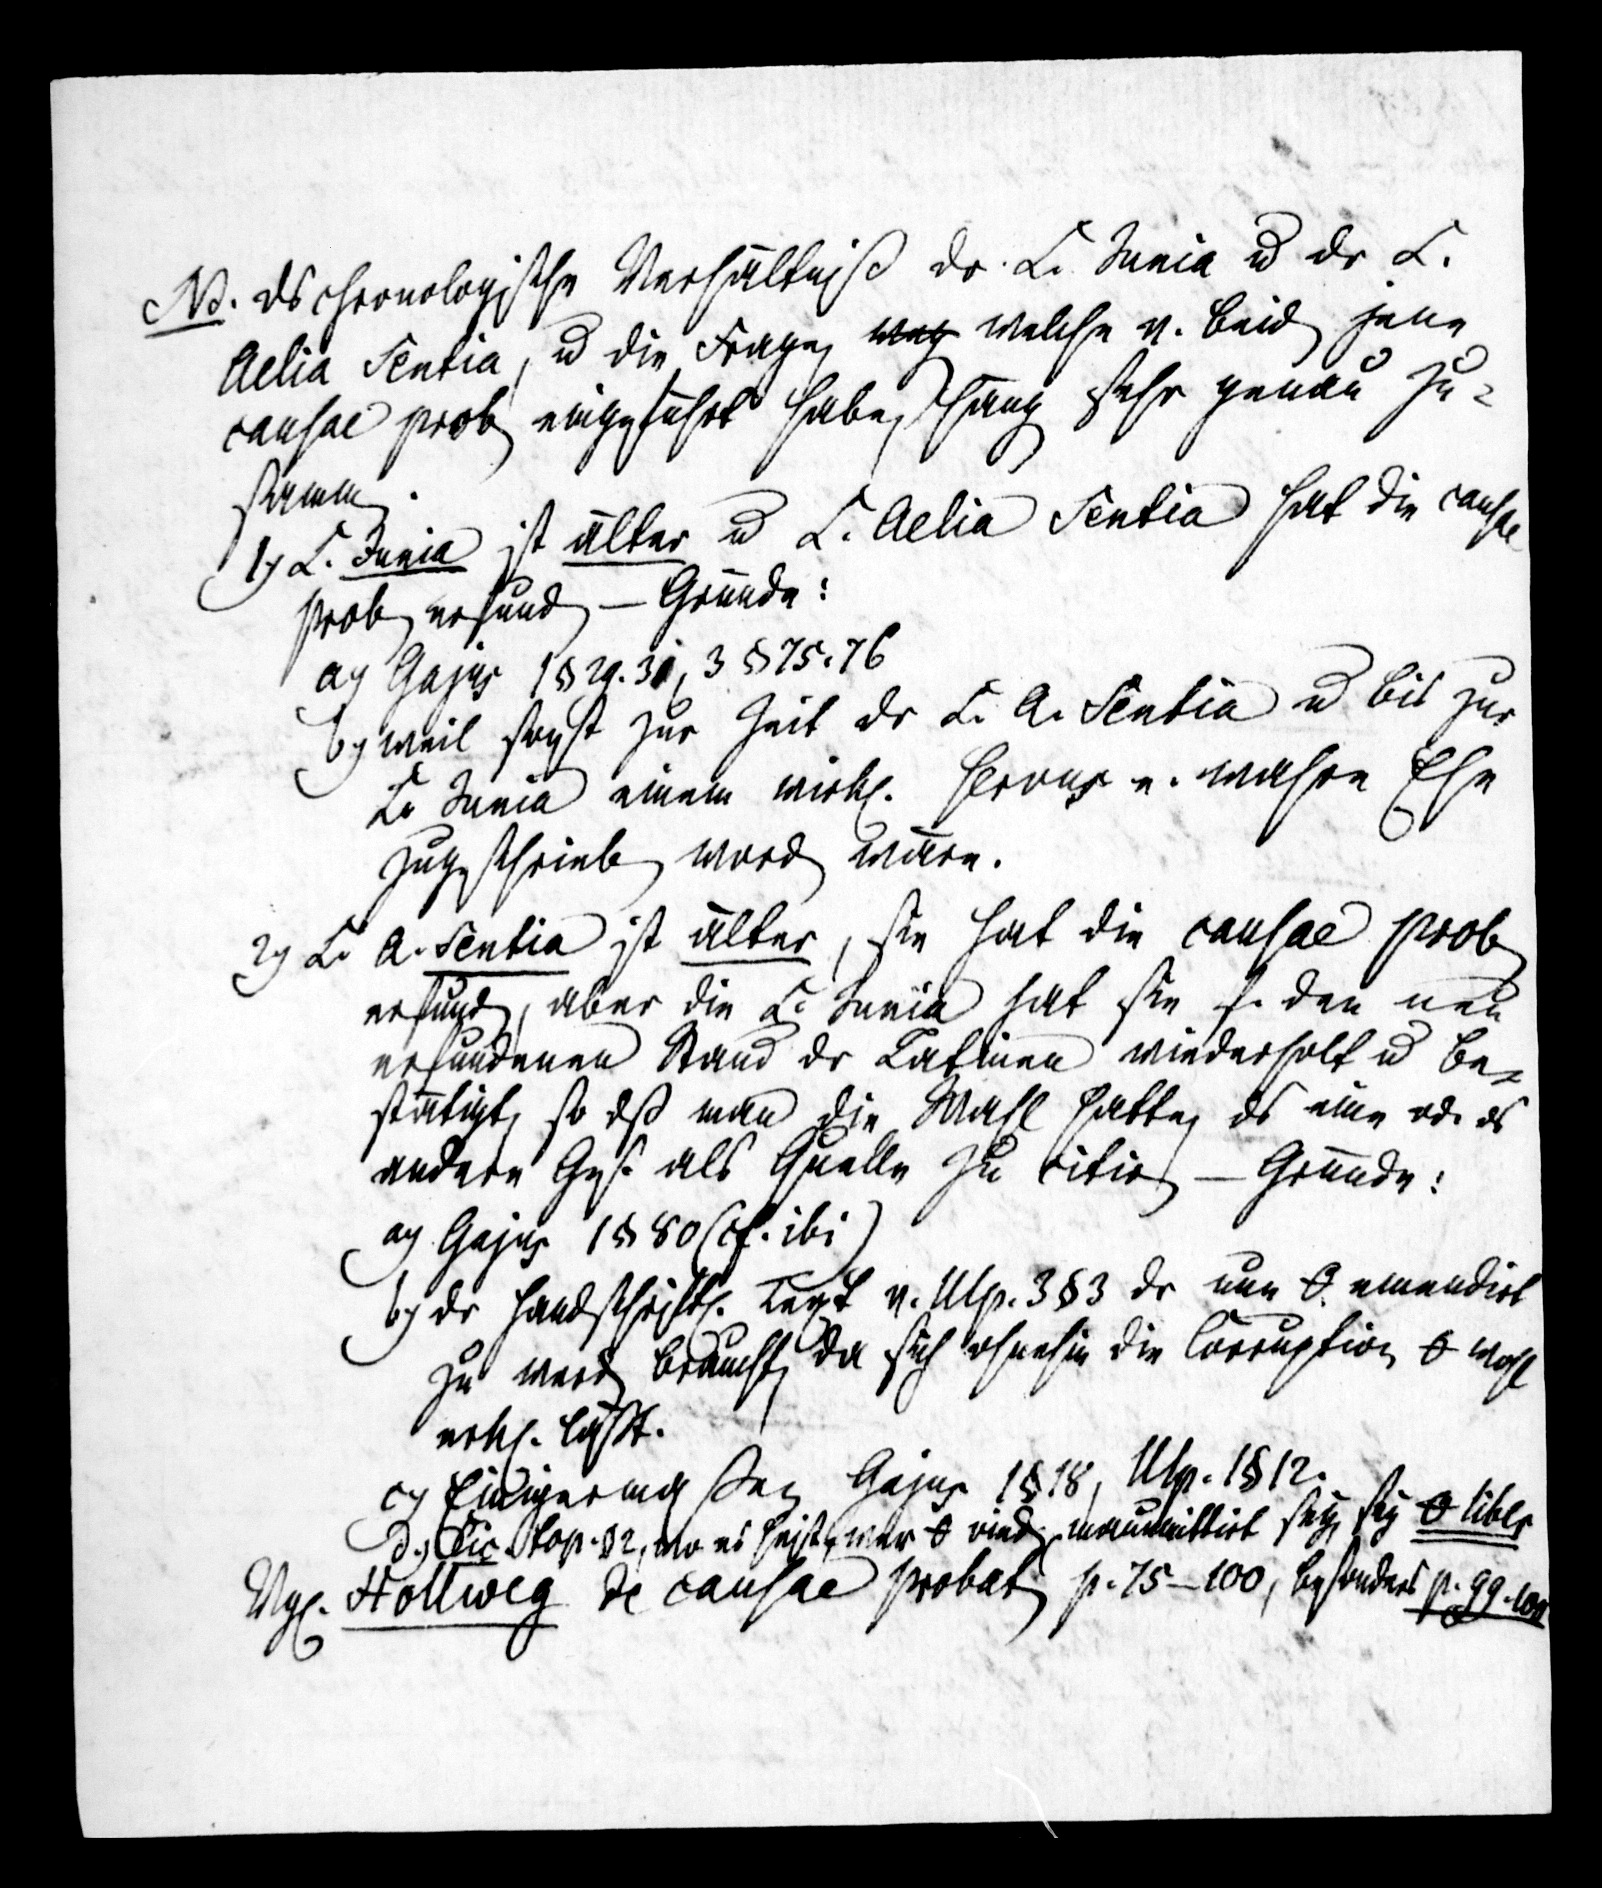 NB. ds chronologische Verhältniß dr L. Junia u dr L.
Aelia Sentia, u die Frage, weg welche v. beid jene
causae prob eingeführt habe, häng sehr genau zu=
samm.
1) L. Junia ist älter u L. Aelia Sentia hat die causae
prob erfund — Gründe:
a) Gajus 1 § 29. 31, 3 § 75. 76
b) weil sonst zur Zeit dr L. A. Sentia u bis zur
L. Junia einem wirkl. servus e. wahre Ehe
zugeschrieb word wäre.
2) L. A. Sentia ist älter, sie hat die causae prob
erfund, aber die L. Junia hat sie f. den neu
erfundenen Stand dr Latinen wiederholt u be=
stätigt, so dß man die Wahl hatte, ds eine od. ds
andere Ges. als Quelle zu citir — Gründe:
a) Gajus 1 § 80 (cf. ibi)
b) dr handschriftl. Text v. Ulp. 3 § 3 dr nun 0 emendirt
zu werd braucht, da sich ohnehin die Corruption 0 wohl
erkl. läßt.
c) Einigermaßen Gajus 1 § 18, Ulp. 1 § 12.
d.) Cic. Top. § 2, wo es heist, wer 0 vind. manumittirt sey, sey 0 liber
Vgl. Hollweg de causae probat p. 75–100, besonders p. 99. 100